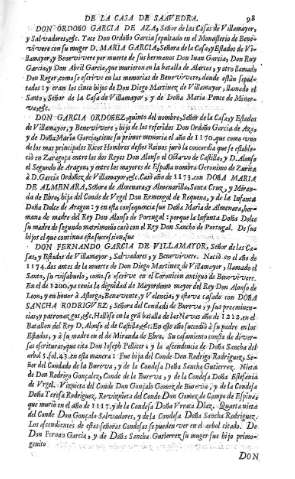 DE LA CASA DE SAAVEDRA. 98
DON ORDOÑO GARCIA DE AZA, Señor de las Casas de Villamayor,
y Salvadores, &c. Yace Don Ordoño Garcia sepultado en el Monasterio de Bene-
vivere con su muger D. MARIA GARCIA, Señora de la Casa, y Estados de Vi-
llamayor, y Benevivere por muerte de sus hermanos Don Juan Garcia, Don Ruy
Garcia, y Don Abril Garcia, que murieron en la batalla de Alarcos, y otro llamado
Don Roger, como se escrive en las memorias de Benevivere, donde están sepul-
tados: y eran los cinco hijos de Don Diego Martinez de Villamayor, llamado el
Santo, Señor de la Casa de Villamayor, y de Doña Maria Ponce de Miner-
va, &c.
DON GARCIA ORDOÑEZ, quinto del nombre, Señor de la Casa, y Estados
de Villamayor, y Benevivere, hijo de los referidos Don Ordoño Garcia de Aza,
y de Doña Maria Garcia,
de los mas principales Ricos Hombres destos Reinos juró la concordia que se estable-
ció en Zaragoza entre los dos Reyes Don Alonso el Octavo de Castilla, y D. Alonso
el Segundo de Aragon, y entre los mayores de España nombra Geronimo de Zurita
à D. Garcia Ordoñez de Villamayor, &c. Casó año de 1173. con DOÑA MARIA
DE ALMENARA, Señora de Almenara, y Almenarilla, Santa Cruz, y Miran-
da de Ebro, hija del Conde de Vrgel Don Ermengol de Requena, y de la Infanta
Doña Dulce de Aragon: y en esta consequencia fue Doña Maria de Almenara, her-
mana de madre del Rey Don Alonso de Portugal: porque la Infanta Doña Dulce
su madre de segundo matrimonio casó con el Rey Don Sancho de Portugal. De su
hijo el que continua esta sucesion, fue
DON FERNANDO GARCIA DE VILLAMAYOR, Señor de las Ca-
sas, y Estados de Villamayor, Salvadores, y Benevivere. Nació en el año de
1174. dos antes de la muerte de Don Diego Martinez de Villamayor, llamado el
Santo, su visabuelo, como se escrive en el Cornicon antiguo de Benevivere.
En el de 1200. ya tenia la dignidad de Mayordomo mayor del Rey Don Alonso de
Leon, y en honor à Astorga, Benavente, y Valencia, y estava casado con DOÑA
SANCHA RODRIGVEZ, Señora del Condado de Bureva, y sus preeminen-
cias, y patronatos, &c. Hallose en la grã batalla de las Navas año de 1212. en el
Batallon del Rey D. Alonso el de Castilla, &c. En este año sucedió à su padre en los
Estados, y à su madre en el de Miranda de Ebro. Su casamiento consta de diver-
sas escrituras, que cita Don Joseph Pellicer: y la ascendencia de Doña Sancha del
arbol 5. fol. 43. en esta manera: Fue hija del Conde Don Rodrigo Rodriguez, Se-
ñor del Condado de la Bureva, y de la Condesa Doña Sancha Gutierrez, Nieta
de Don Rodrigo Gonçalez, Conde de la Bureva, y de la Condesa Doña Estefania
de Vrgel. Visnieta del Conde Don Gonçalo Gomez de Bureva, y de la Condesa
Doña Teresa Rodriguez, Revisnieta del Conde Don Gomez de Campo de Espina,
que murió en el año de 1117. y de la Condesa Doña Vrraca Diaz. Quarta nieta
del Conde Don Gonçalo Salvadores, y de la Condesa Doña Sancha Rodriguez.
Los ascendientes de estas señoras Condesas se pueden ver en el arbol citado. De
Don Fernando Garcia, y de Doña Sancha Gutierrez su muger fue hijo primo-
genito
DON